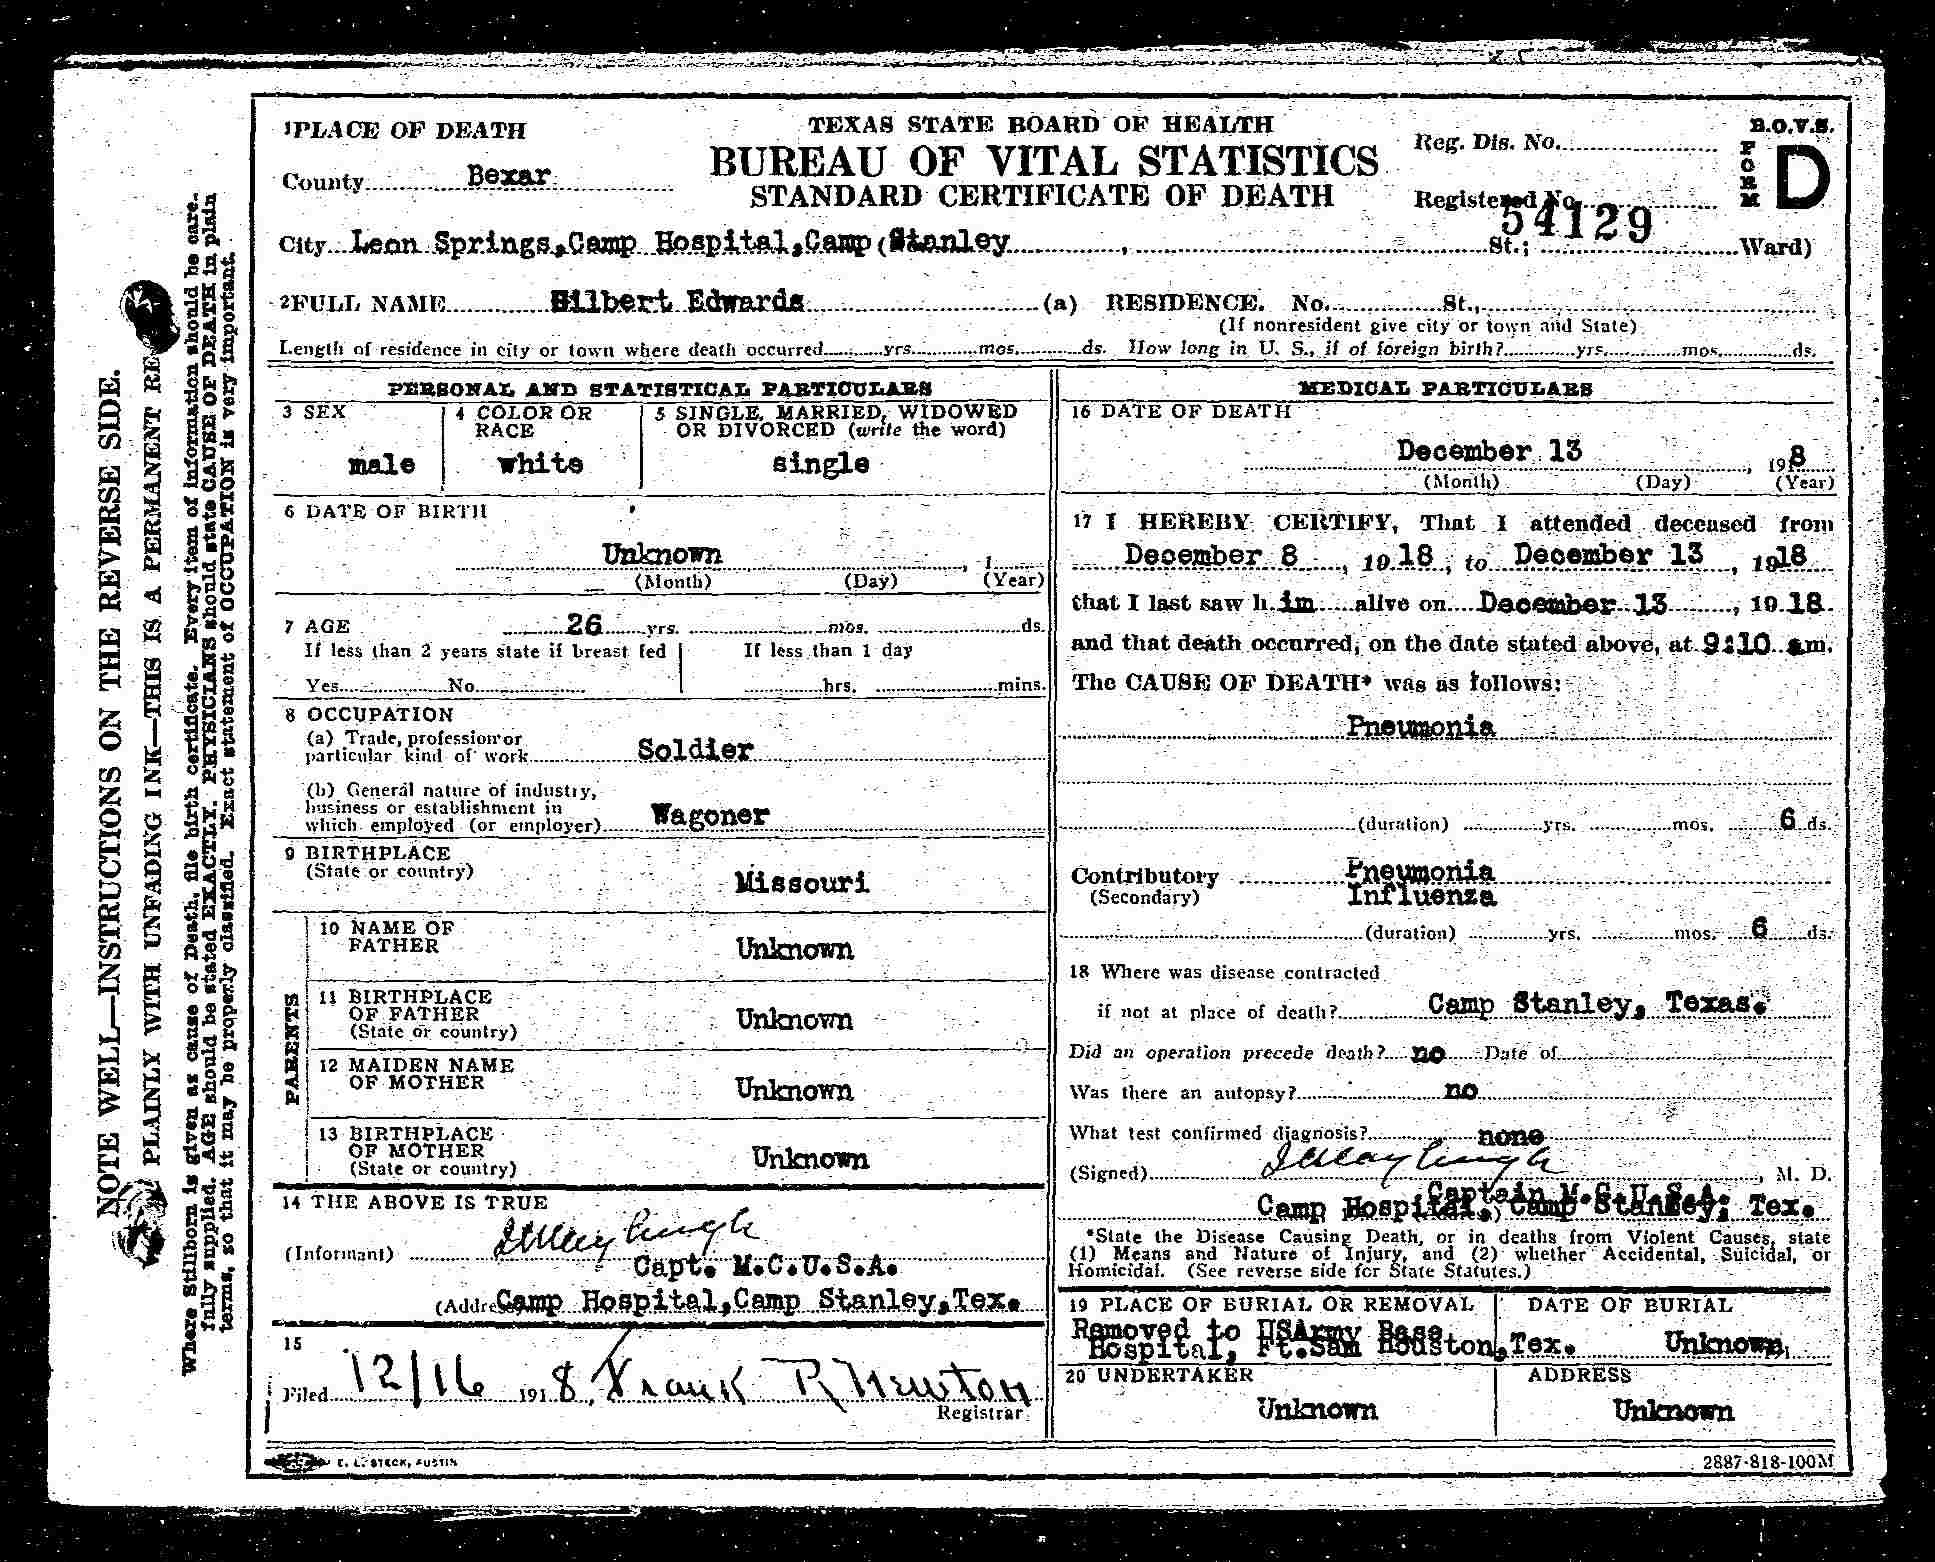 1 PLACE OF DEATH
County Bexar
TEXAS STATE BOARD OF HEALTH
BUREAU OF VITAL STATISTICS
STANDARD CERTIFICATE OF DEATH
Reg. Dis. No.
Registered No.
54129
B.O.V.S.
FORM D
City Leon Springs, Camp Hospital, Camp (Stanley , St.; Ward)
2 FULL NAME Hilbert Edwards (a) RESIDENCE. No. St.,
(If nonresident give city or town and State)
Length of residence in city or town where death occurred yrs. mos. ds. How long in U. S., if of foreign birth? yrs. mos. ds.
PERSONAL AND STATISTICAL PARTICULARS
3 SEX
male
4 COLOR OR RACE
white
5 SINGLE, MARRIED, WIDOWED
OR DIVORCED (write the word)
single
6 DATE OF BIRTH
Unknown , 1
(Month) (Day) (Year)
7 AGE 26 yrs. mos. ds.
If less than 2 years state if breast fed If less than 1 day
Yes No hrs. mins.
8 OCCUPATION
(a) Trade, profession or
particular kind of work Soldier
(b) General nature of industry,
business or establishment in
which employed (or employer) Wagoner
9 BIRTHPLACE
(State or country) Missouri
PARENTS
10 NAME OF
FATHER Unknown
11 BIRTHPLACE
OF FATHER
(State or country) Unknown
12 MAIDEN NAME
OF MOTHER Unknown
13 BIRTHPLACE
OF MOTHER
(State or country) Unknown
14 THE ABOVE IS TRUE
(Informant)
Capt. M.C.U.S.A.
(Address) Camp Hospital, Camp Stanley, Tex.
15
Filed 12/16 1918, Frank R Newton
Registrar
MEDICAL PARTICULARS
16 DATE OF DEATH
December 13 , 1918
(Month) (Day) (Year)
17 I HEREBY CERTIFY, That I attended deceased from
December 8 , 1918, to December 13 , 1918
that I last saw him alive on December 13 , 1918.
and that death occurred, on the date stated above, at 9:10 am.
The CAUSE OF DEATH* was as follows:
Pneumonia
(duration) yrs. mos. 6 ds.
Contributory Pneumonia
(Secondary) Influenza
(duration) yrs. mos. 6 ds.
18 Where was disease contracted
if not at place of death? Camp Stanley, Texas.
Did an operation precede death? no Date of
Was there an autopsy? no
What test confirmed diagnosis? none
(Signed) , M. D.
Captain M.C.U.S.A.
Camp Hospital, Camp Stanley, Tex.
*State the Disease Causing Death, or in deaths from Violent Causes, state
(1) Means and Nature of Injury, and (2) whether Accidental, Suicidal, or
Homicidal. (See reverse side for State Statutes.)
19 PLACE OF BURIAL OR REMOVAL
Removed to USArmy Base
Hospital, Ft.Sam Houston, Tex.
DATE OF BURIAL
Unknown,
20 UNDERTAKER
Unknown
ADDRESS
Unknown
E. L. STECK, AUSTIN
2887-818-100M
NOTE WELL—INSTRUCTIONS ON THE REVERSE SIDE.
PLAINLY WITH UNFADING INK—THIS IS A PERMANENT RE
Where Stillborn is given as cause of Death, file birth certificate. Every item of information should be care-
fully supplied. AGE should be stated EXACTLY. PHYSICIANS should state CAUSE OF DEATH in plain
terms, so that it may be properly classified. Exact statement of OCCUPATION is very important.